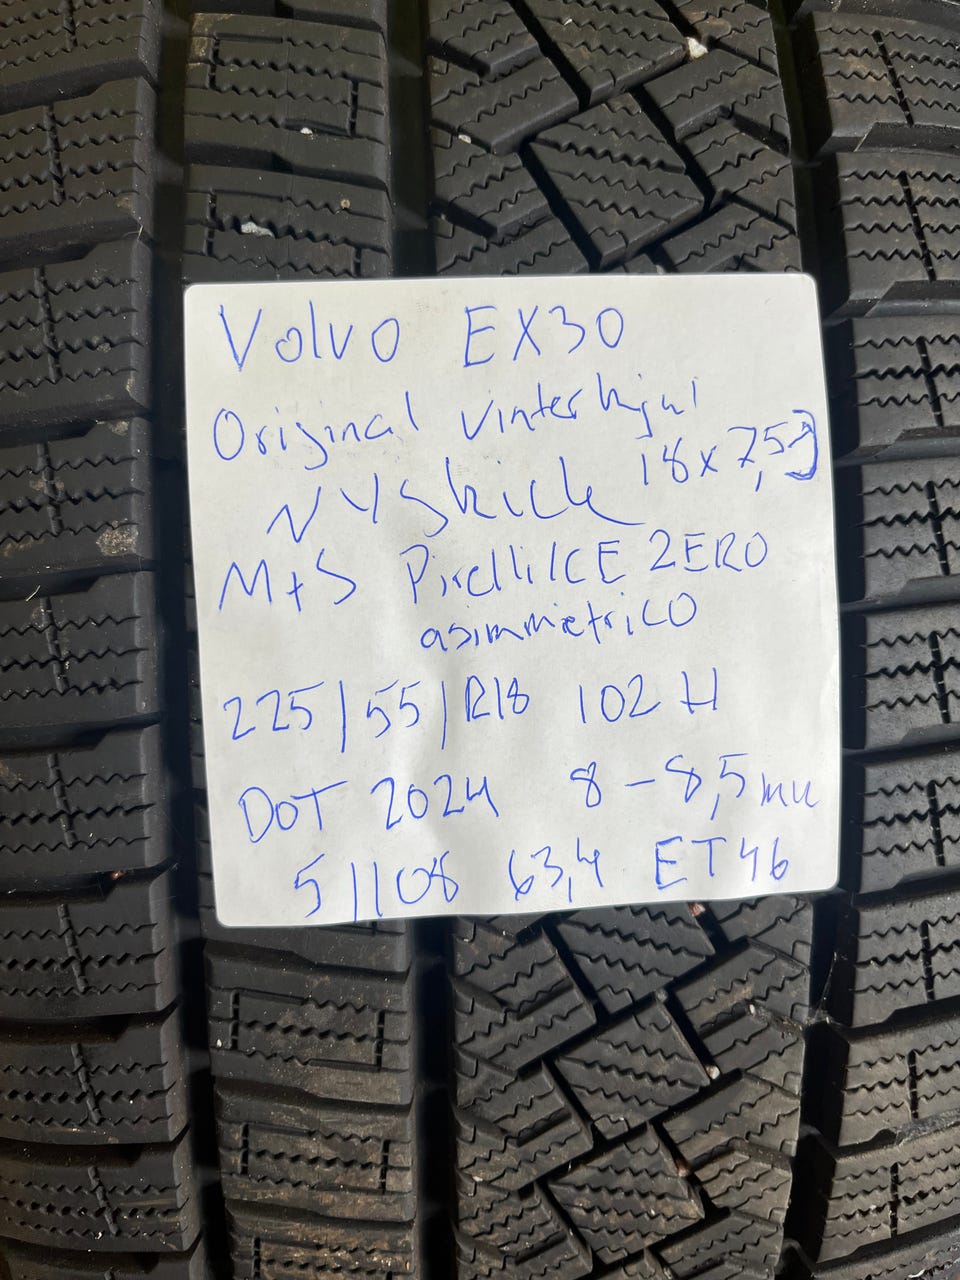 Volvo EX30
Original vinterhjul
18x7,5J
NYSkick
M+S Pirelli ICE ZERO
asimmetrico
225/55/R18 102 H
DOT 2024 8-8,5mm
5/108 63,4 ET46